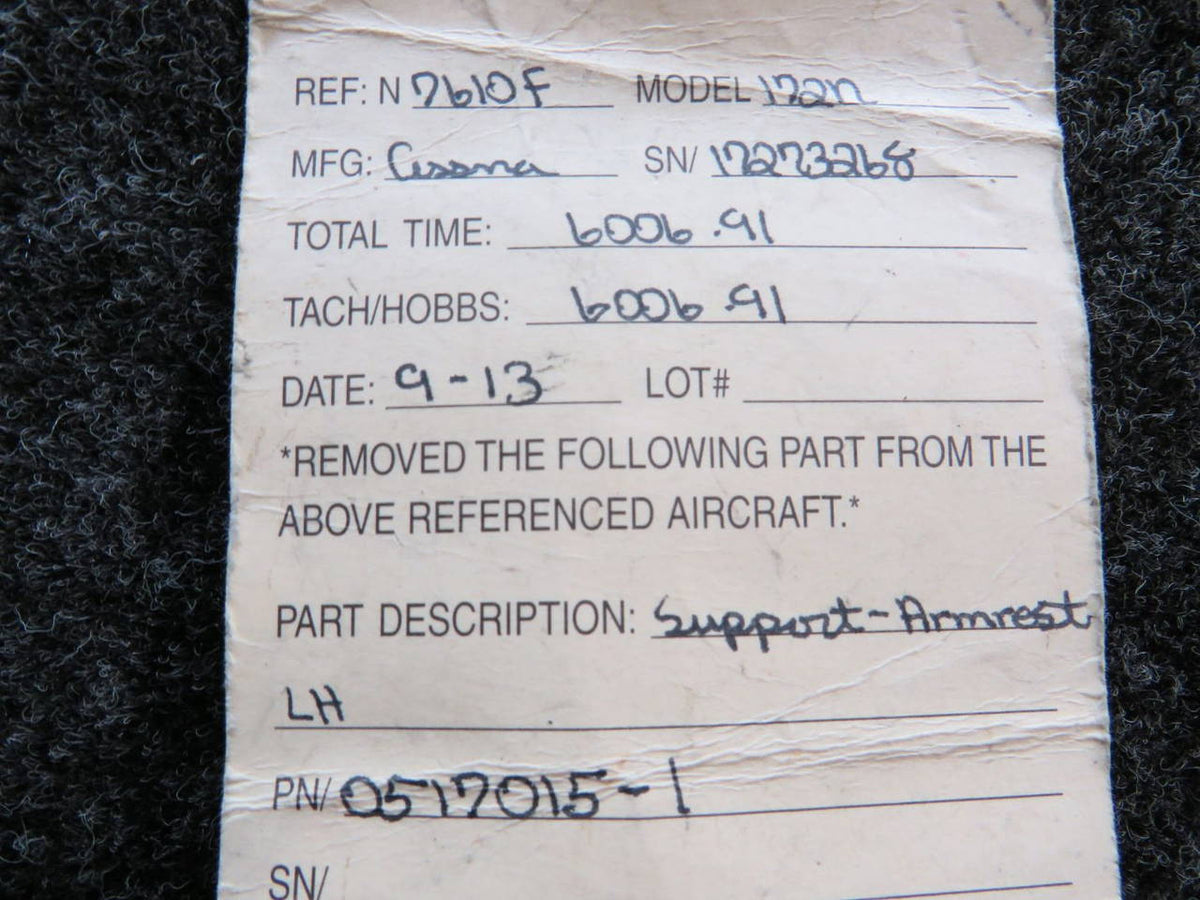 REF: N 7610F MODEL 172n
MFG: Cessna SN/ 17273268
TOTAL TIME: 6006.91
TACH/HOBBS: 6006.91
DATE: 9-13 LOT#
*REMOVED THE FOLLOWING PART FROM THE
ABOVE REFERENCED AIRCRAFT.*
PART DESCRIPTION: Support-Armrest
LH
PN/ 0517015-1
SN/